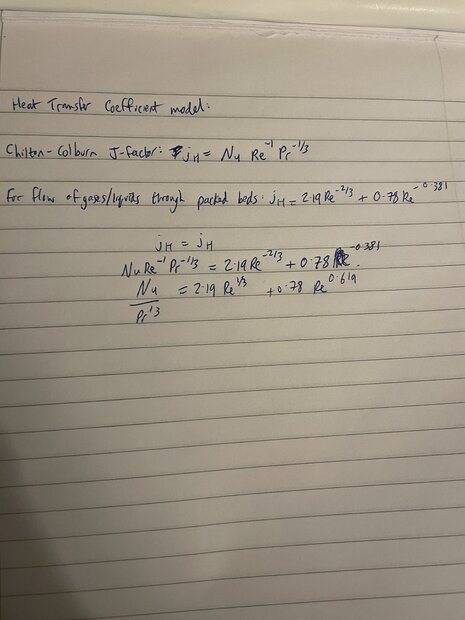 Heat Transfer Coefficient model:
Chilton-Colburn J-factor: jH = Nu Re⁻¹ Pr⁻¹/³
For flow of gases/liquids through packed beds: jH = 2.19 Re⁻²/³ + 0.78 Re⁻⁰·³⁸¹
jH = jH
Nu Re⁻¹ Pr⁻¹/³ = 2.19 Re⁻²/³ + 0.78 Re⁻⁰·³⁸¹.
Nu/Pr¹/³ = 2.19 Re¹/³ + 0.78 Re⁰·⁶¹⁹